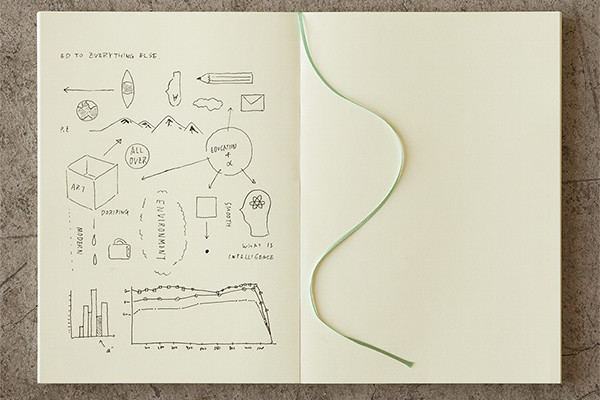 ED TO EVERYTHING ELSE.
P.E
ALL
OVER
EDUCATION
+
α
ART
DORIPING
MODERN
ENVIRONMENT
SMOOTH
WHAT IS
INTELLIGENCE